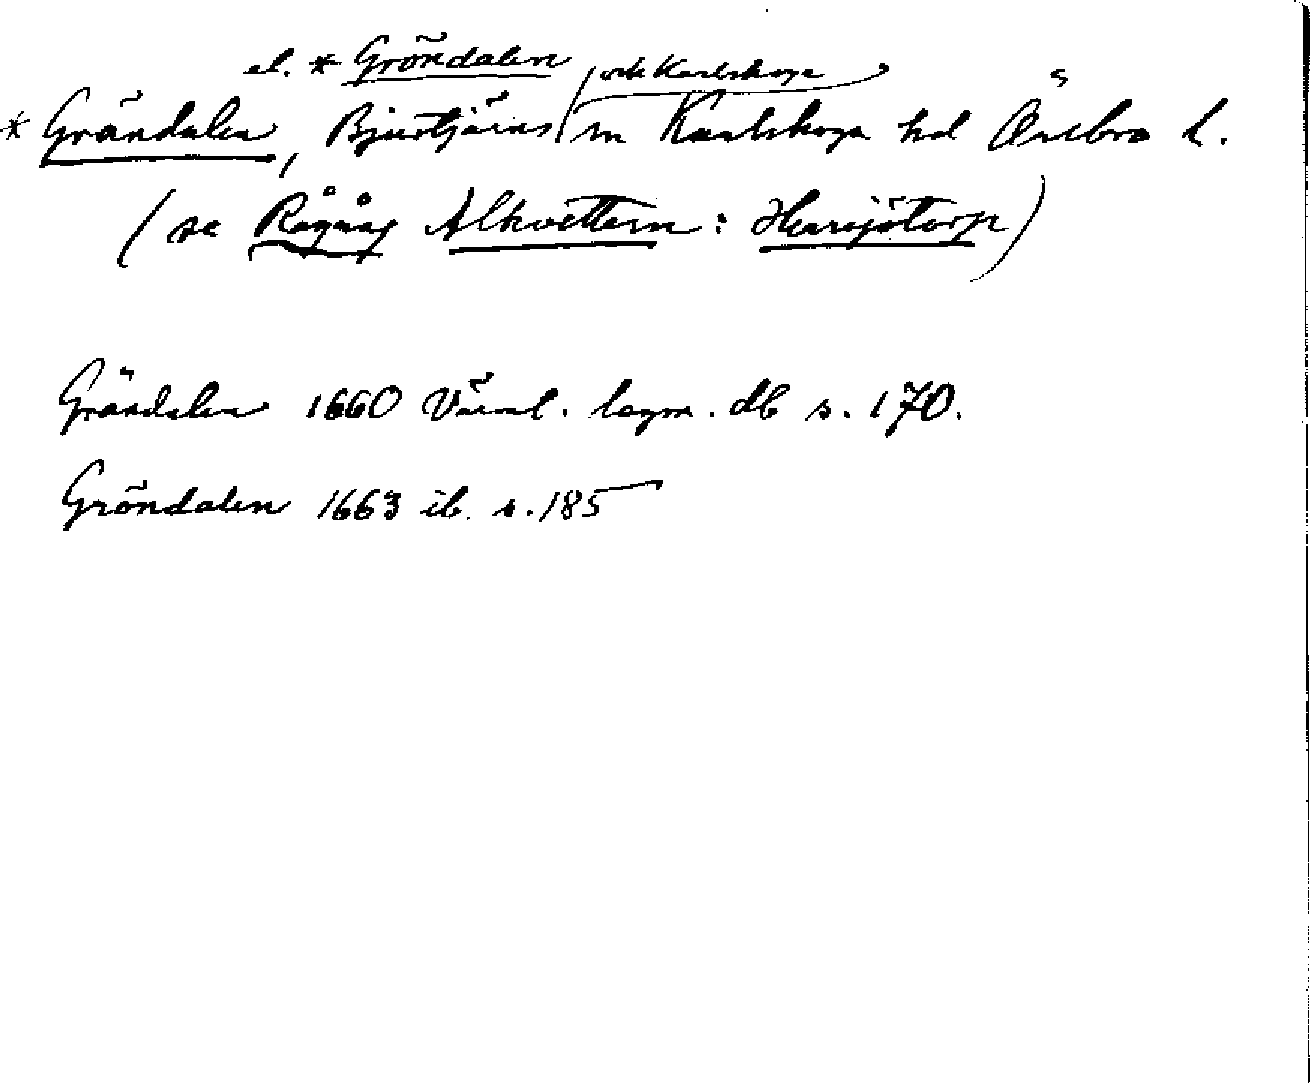 el. * Gröndalen och Karlskoga
* Grändalen, Bjurtjärns sn Karlskoga hd Örebro l.
(se Rågång Alkvettern : Herrsjötorp)
Grändalen 1660 Värml. lagm. db s. 170.
Gröndalen 1663 ib. s. 185